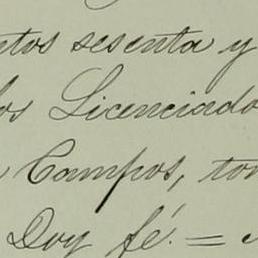 ntos sesenta y
los Licenciado
Campos, tom
Doy fé. =